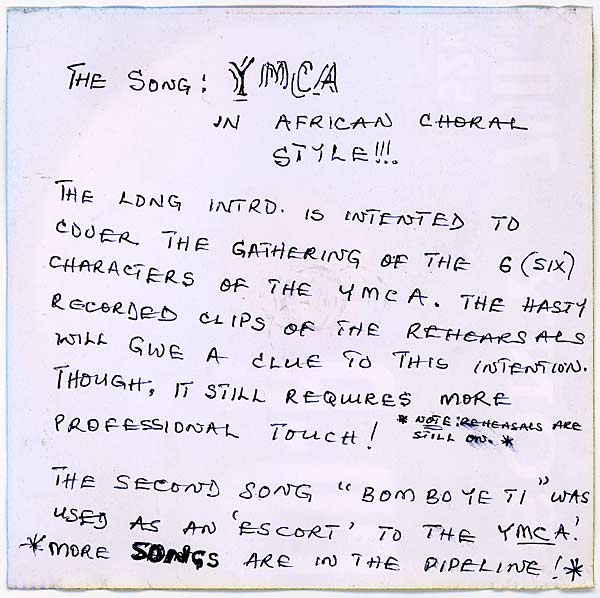 THE SONG: YMCA
IN AFRICAN CHORAL
STYLE!!!.
THE LONG INTRO. IS INTENTED TO
COVER THE GATHERING OF THE 6 (SIX)
CHARACTERS OF THE YMCA. THE HASTY
RECORDED CLIPS OF THE REHEARSALS
WILL GIVE A CLUE TO THIS INTENTION.
THOUGH, IT STILL REQUIRES MORE
PROFESSIONAL TOUCH! * NOTE: REHEASALS ARE
STILL ON. *
THE SECOND SONG "BOMBOYETI" WAS
USED AS AN 'ESCORT' TO THE YMCA!
*MORE SONGS ARE IN THE PIPELINE!*